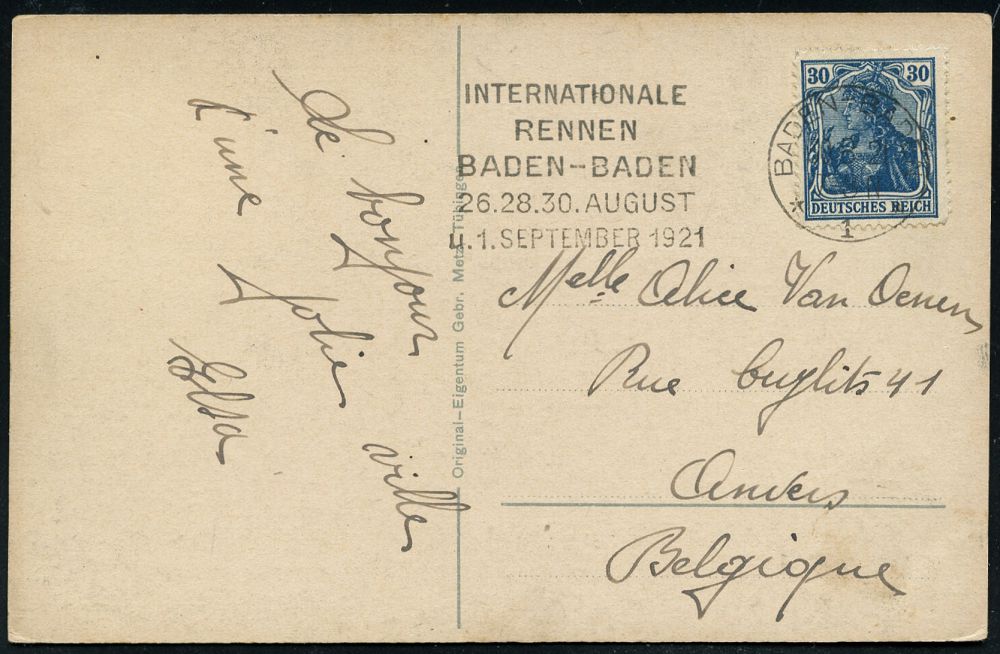 Le bonjour
d'une jolie ville
Elsa
Original-Eigentum Gebr. Metz, Tübingen
INTERNATIONALE
RENNEN
BADEN-BADEN
26.28.30. AUGUST
u. 1. SEPTEMBER 1921
30 30
DEUTSCHES REICH
BADEN-BADEN
* 1
Melle Alice Van Oenen
Rue 41
Anvers
Belgique